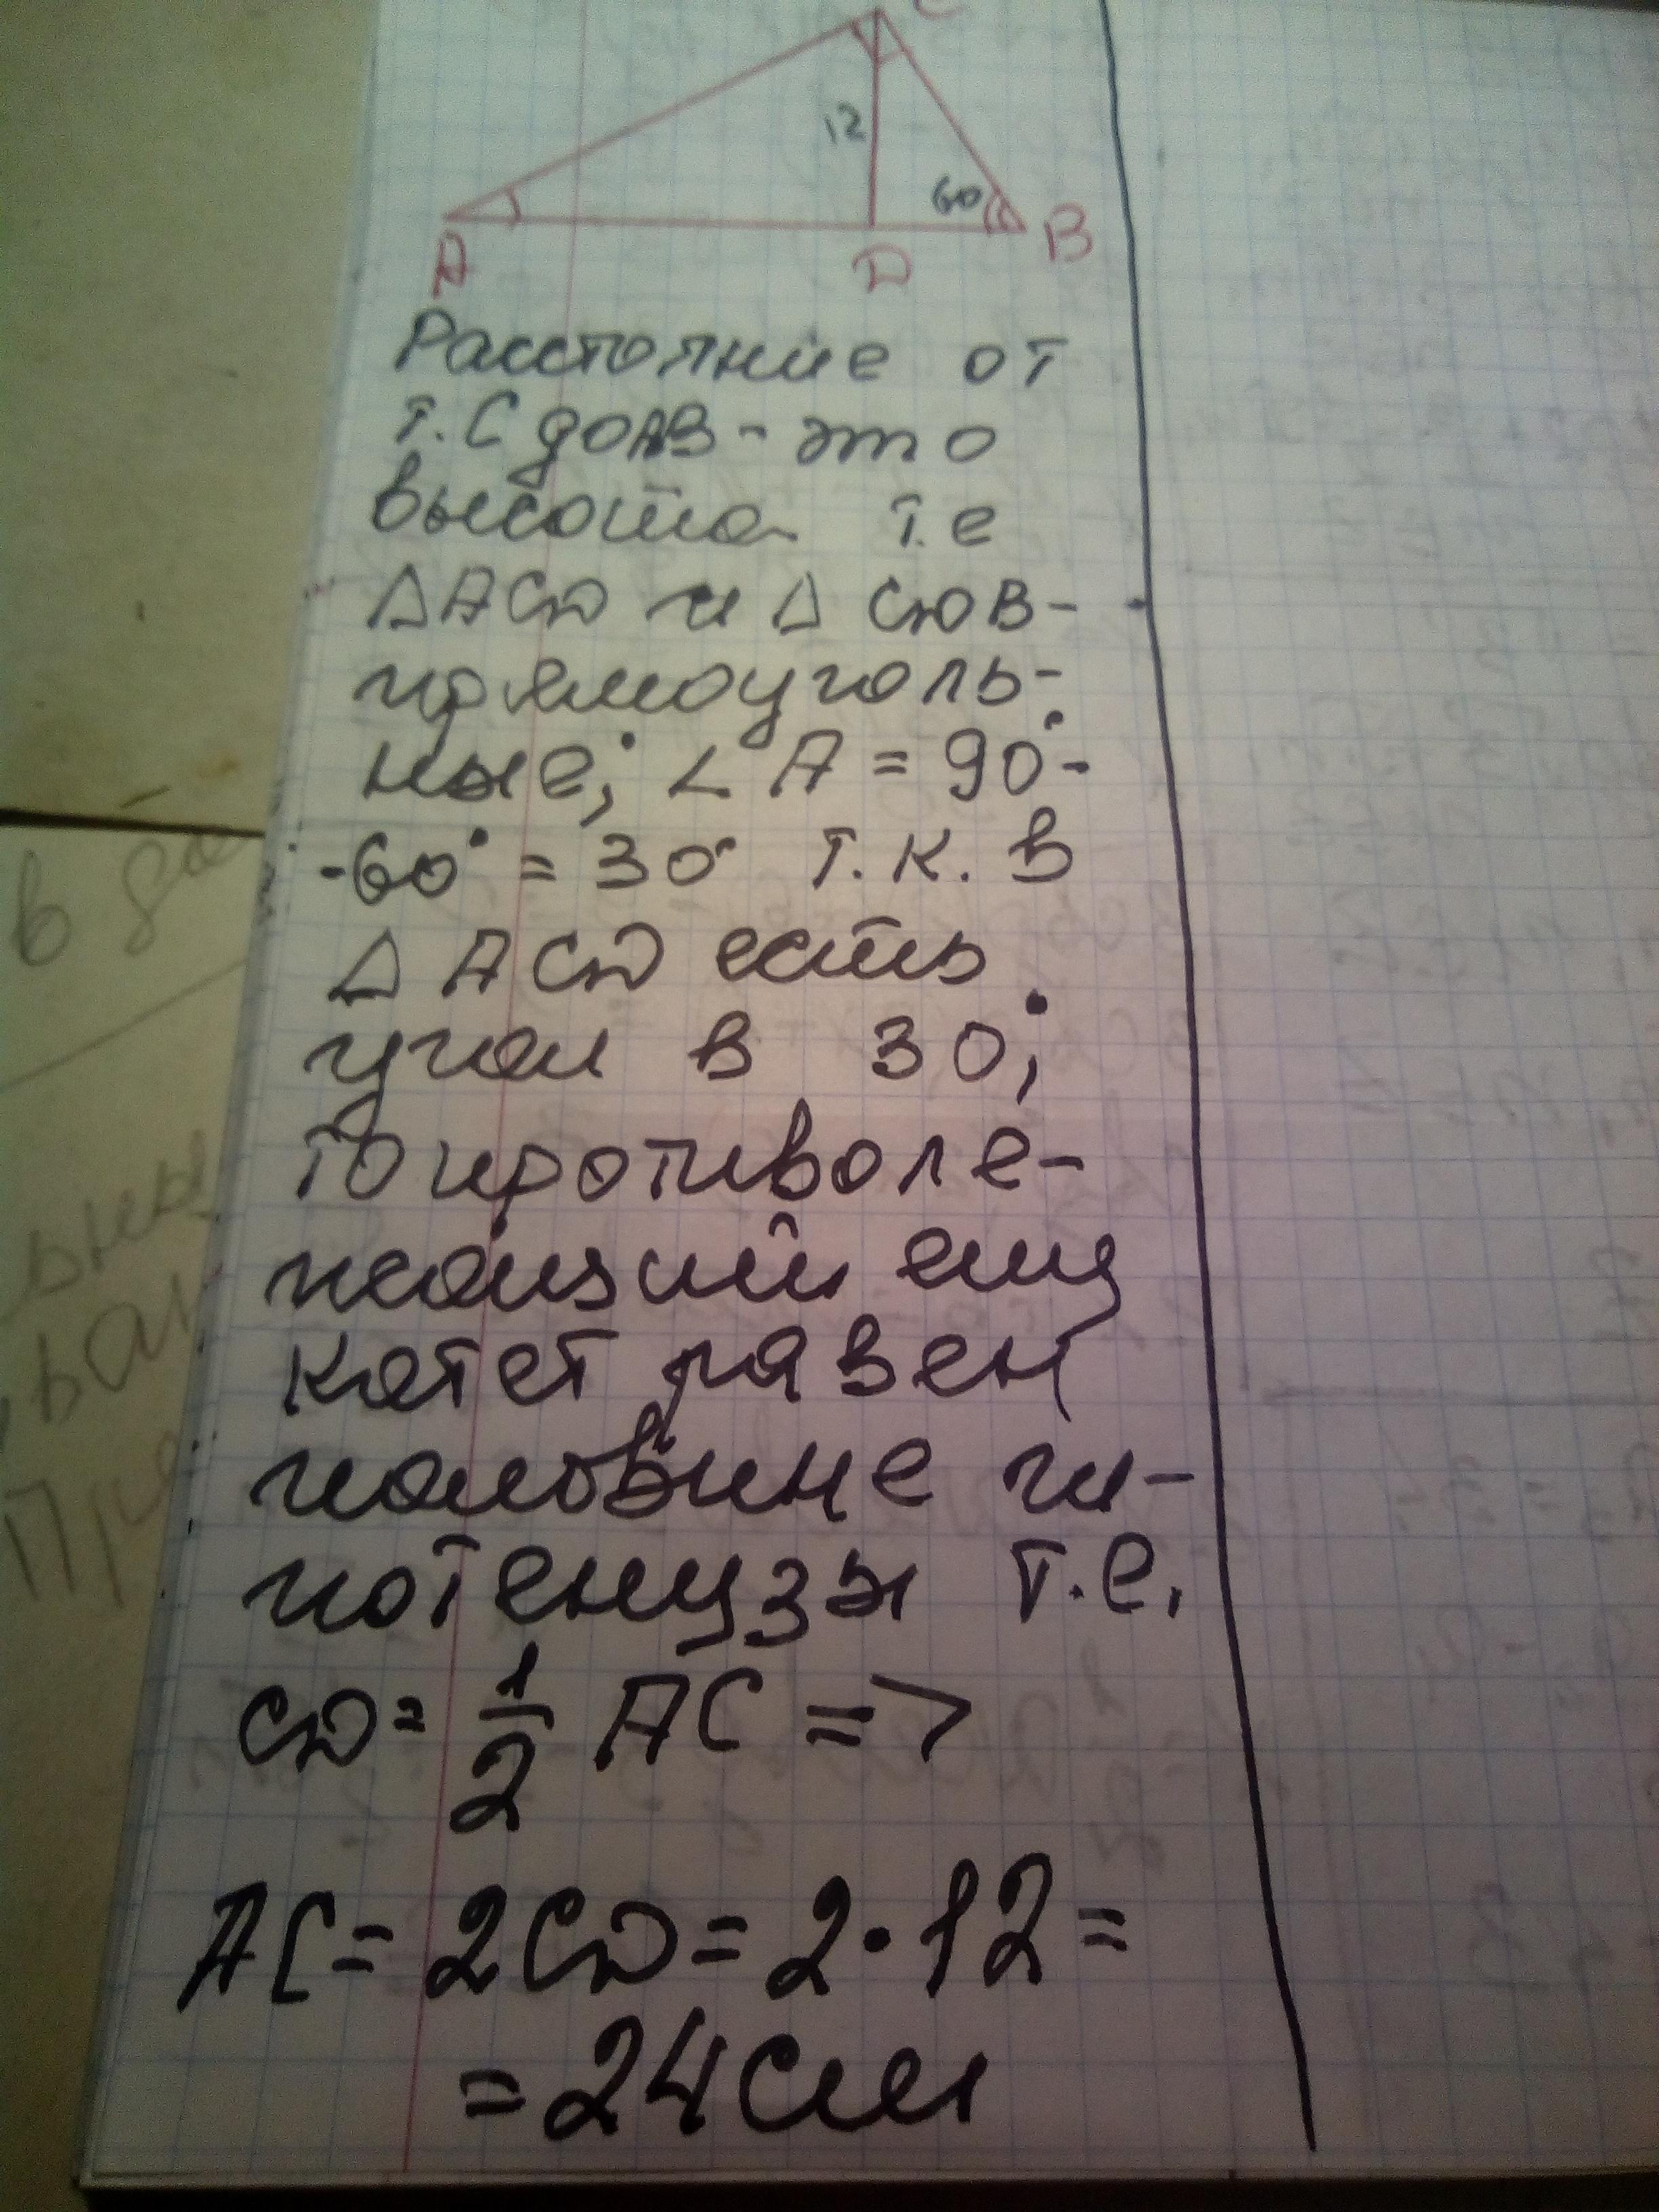 C
12
60
A
D
B
Расстояние от
т. С до АВ - это
высота т.е
Δ ACD и Δ CDB -
прямоуголь-
ные; ∠ A = 90° -
- 60° = 30° т.к. в
Δ ACD есть
угол в 30°;
то противоле-
жащий ему
катет равен
половине ги-
потенузы т.е.
CD = 1/2 AC =>
AC = 2CD = 2 · 12 =
= 24 см
в
ны
ван
При